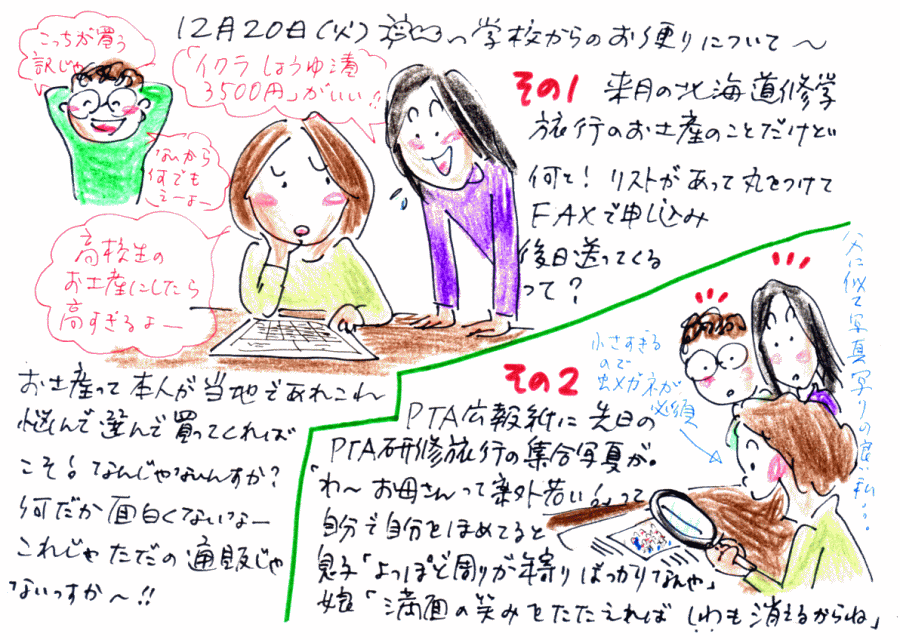 12月20日(火) 学校からのお便りについて〜
こっちが買う
訳じゃ
ないから
何でも
えーよー
「イクラしょうゆ漬
3500円」がいい!!
高校生の
お土産にしたら
高すぎるよー
その1 来月の北海道修学
旅行のお土産のことだけど
何と!リストがあって丸をつけて
FAXで申し込み
後日送ってくる
って?
お土産って本人が当地であれこれ
悩んで選んで買ってくれば
こそ!なんじゃないんすか?
何だか面白くないなー
これじゃただの通販じゃ
ないっすか〜!!
その2 PTA広報紙に先日の
PTA研修旅行の集合写真が。
「わ〜お母さんって案外若い!」って
自分で自分をほめてると
息子「よっぽど周りが年寄りばっかりなんや」
娘「満面の笑みをたたえればしわも消えるからね」
小さすぎる
ので
虫メガネが
必須
父に似て写真写りの良い私...